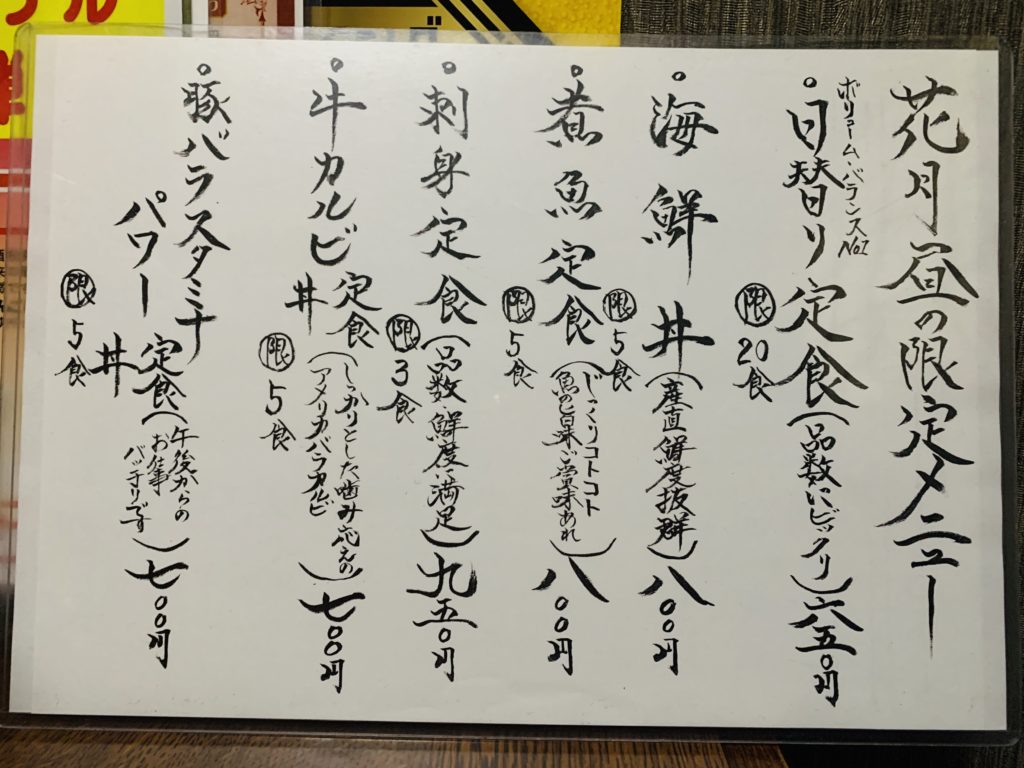 花月昼の限定メニュー
ボリューム・バランスNo.1
・日替り定食(品数にビックリ)六五〇円
限20食
・海鮮丼(産直鮮度抜群)八〇〇円
限5食
・煮魚定食(じっくりコトコト
魚の旨味ご賞味あれ)八〇〇円
限5食
・刺身定食(品数鮮度満足)九五〇円
限3食
・牛カルビ定食
丼
(しっかりとした噛み応えの
アメリカバラカルビ)七〇〇円
限5食
・豚バラスタミナ
パワー定食
丼
(午後からの
お仕事
バッチリです)七〇〇円
限5食